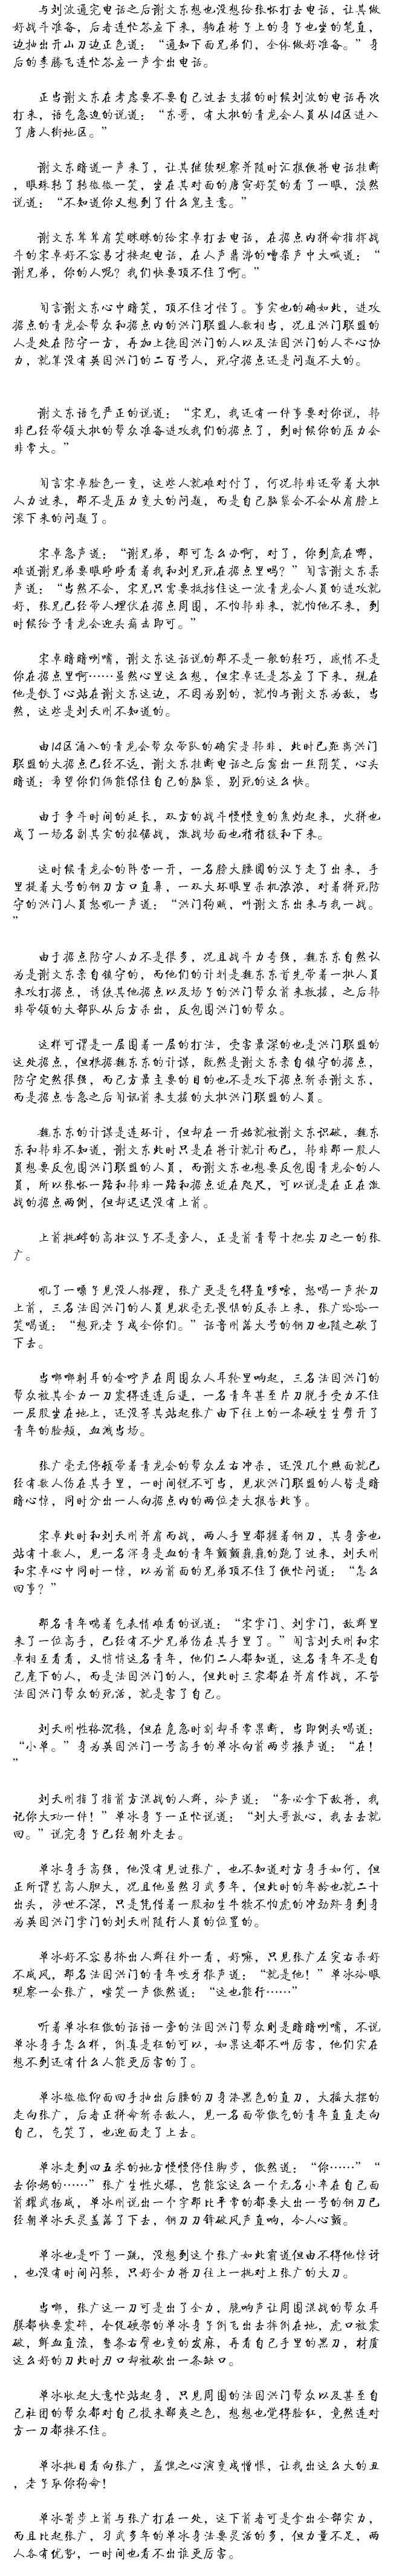 与刘波通完电话之后谢文东想也没想给张怀打去电话，让其做
好战斗准备，后者连忙答应下来，躺在椅子上的身子也坐的笔直，
边抽出开山刀边正色道：“通知下面兄弟们，全体做好准备。”身
后的李腾飞连忙答应一声拿出电话。
正当谢文东在考虑要不要自己过去支援的时候刘波的电话再次
打来，语气急迫的说道：“东哥，有大批的青龙会人员从14区进入
了唐人街地区。”
谢文东暗道一声来了，让其继续观察并随时汇报便将电话挂断
，眼珠转了转微微一笑，坐在其对面的唐寅好笑的看了一眼，淡然
说道：“不知道你又想到了什么鬼主意。”
谢文东耸耸肩笑眯眯的给宋卓打去电话，在据点内拼命指挥战
斗的宋卓好不容易才接起电话，在人声鼎沸的嘈杂声中大喊道：“
谢兄弟，你的人呢？我们快要顶不住了啊。”
闻言谢文东心中暗笑，顶不住才怪了。事实也的确如此，进攻
据点的青龙会帮众和据点内的洪门联盟人数相当，况且洪门联盟的
人是处在防守一方，再加上德国洪门的人以及法国洪门的人齐心协
力，就算没有英国洪门的二百号人，死守据点还是问题不大的。
谢文东语气严正的说道：“宋兄，我还有一件事要对你说，韩
非已经带领大批的帮众准备进攻我们的据点了，到时候你的压力会
非常大。”
闻言宋卓脸色一变，这些人就难对付了，何况韩非还带着大批
人力过来，那不是压力变大的问题，而是自己脑袋会不会从肩膀上
滚下来的问题了。
宋卓急声道：“谢兄弟，那可怎么办啊，对了，你到底在哪，
难道谢兄弟要眼睁睁看着我和刘兄死在据点里吗？”闻言谢文东柔
声道：“当然不会，宋兄只需要抵挡住这一波青龙会人员的进攻就
好，张兄已经带人埋伏在据点周围，不怕韩非来，就怕他不来，到
时候给予青龙会迎头痛击即可。”
宋卓暗暗咧嘴，谢文东这话说的那不是一般的轻巧，感情不是
你在据点里啊……虽然心里这么想，但宋卓还是答应了下来，现在
他是铁了心站在谢文东这边，不因为别的，就怕与谢文东为敌，当
然，这些是刘天刚不知道的。
由14区涌入的青龙会帮众带队的确实是韩非，此时已距离洪门
联盟的大据点已经不远，谢文东挂断电话之后露出一丝阴笑，心头
暗道：希望你们俩能保住自己的脑袋，别死的这么快。
由于争斗时间的延长，双方的战斗慢慢变的焦灼起来，火拼也
成了一场名副其实的拉锯战，激战场面也稍稍缓和下来。
这时候青龙会的阵营一开，一名膀大腰圆的汉子走了出来，手
里提着大号的钢刀方口直鼻，一双大环眼里杀机浓浓，对着拼死防
守的洪门人员怒吼一声道：“洪门狗贼，叫谢文东出来与我一战。
”
由于据点防守人力不是很多，况且战斗力奇强，魏东东自然认
为是谢文东亲自镇守的，而他们的计划是魏东东首先带着一批人员
来攻打据点，诱使其他据点以及场子的洪门帮众前来救援，之后韩
非带领的大部队从后方杀出，反包围洪门的帮众。
这样可谓是一层围着一层的打法，受害最深的也是洪门联盟的
这处据点，但根据魏东东的计谋，既然是谢文东亲自镇守的据点，
防守定然很强，而己方最主要的目的也不是攻下据点斩杀谢文东，
而是据点告急之后闻讯前来支援的大批洪门联盟的人员。
魏东东的计谋是连环计，但却在一开始就被谢文东识破，魏东
东和韩非不知道，谢文东此时只是在将计就计而已，韩非那一股人
员想要反包围洪门联盟的人员，而谢文东也想要反包围青龙会的人
员，所以张怀一路和韩非一路和据点近在咫尺，可以说是在正在激
战的据点两侧，但却迟迟没有上前。
上前挑衅的高壮汉子不是旁人，正是前青帮十把尖刀之一的张
广。
吼了一嗓子见没人搭理，张广更是气得直哆嗦，怒喝一声抡刀
上前，三名法国洪门的人员见状毫无畏惧的反杀上来，张广哈哈一
笑喝道：“想死老子成全你们。”话音刚落大号的钢刀也随之砍了
下去。
当啷啷刺耳的金咛声在周围众人耳轮里响起，三名法国洪门的
帮众被其全力一刀震得连连后退，一名青年甚至片刀脱手受力不住
一屁股坐在地上，还没等其站起张广由下往上的一条硬生生劈开了
青年的脸颊，血溅当场。
张广毫无停顿带着青龙会的帮众左右冲杀，还没几个照面就已
经有数人伤在其手里，一时间锐不可当，见状洪门联盟的人皆是暗
暗心惊，同时分出一人向据点内的两位老大报告此事。
宋卓此时和刘天刚并肩而战，两人手里都握着钢刀，其身旁也
站有十数人，见一名浑身是血的青年颤颤巍巍的跑了过来，刘天刚
和宋卓心中同时一惊，以为前面的兄弟顶不住了便忙问道：“怎么
回事？”
那名青年喘着气表情难看的说道：“宋掌门、刘掌门，敌群里
来了一位高手，已经有不少兄弟伤在其手里了。”闻言刘天刚和宋
卓相互看看，又悄悄这名青年，他们二人都知道，这名青年不是自
己麾下的人，而是法国洪门的人，但此时三家都在并肩作战，不管
法国洪门帮众的死活，就是害了自己。
刘天刚性格沉稳，但在危急时刻却异常果断，当即侧头喝道：
“小单。”身为英国洪门一号高手的单冰向前两步振声道：“在！
”
刘天刚指了指前方混战的人群，冷声道：“务必拿下敌将，我
记你大功一件！”单冰身子一正忙说道：“刘大哥放心，我去去就
回。”说完身子已经朝外走去。
单冰身手高强，他没有见过张广，也不知道对方身手如何，但
正所谓艺高人胆大，况且他虽然习武多年，但此时的年龄也就二十
出头，涉世不深，只是凭借着一股初生牛犊不怕虎的冲劲跻身到身
为英国洪门掌门的刘天刚随行人员的位置的。
单冰好不容易挤出人群往外一看，好嘛，只见张广左突右杀好
不威风，那名法国洪门的青年咬牙狠声道：“就是他！”单冰冷眼
观察一会张广，嗤笑一声傲然道：“这也能行……”
听着单冰狂傲的话语一旁的法国洪门帮众则是暗暗咧嘴，不说
单冰身手怎么样，倒真是狂的可以，如果这都不叫厉害，他们实在
想不到还有什么人能更厉害的了。
单冰微微仰面回手抽出后腰的刀身漆黑色的直刀，大摇大摆的
走向张广，后者正拼命斩杀敌人，见一名面带傲气的青年直直走向
自己，气笑了，也迎面走了上去。
单冰走到四五米的地方慢慢停住脚步，傲然道：“你……”“
去你妈的……”张广生性火爆，岂能容这么一个无名小卒在自己面
前耀武扬威，单冰刚说出一个字那比平常的都要大出一号的钢刀已
经朝单冰天灵盖落了下去，钢刀刀锋破风声直响，令人心颤。
单冰也是吓了一跳，没想到这个张广如此霸道但由不得他惊讶
，也没有时间闪躲，只好全力将刀往上一挑对上张广的大刀。
当啷，张广这一刀可是出了全力，脆响声让周围混战的帮众耳
膜都快要震碎，仓促硬架的单冰身子倒飞出去摔倒在地，虎口被震
破，鲜血直流，整条右臂也变的发麻，再看自己手里的黑刀，材质
这么好的刀此时刃口却被砍出一条缺口。
单冰收起大意忙站起身，只见周围的法国洪门帮众以及甚至自
己社团的帮众都对自己投来鄙夷之色，想想也觉得脸红，竟然连对
方一刀都接不住。
单冰抬目看向张广，羞愧之心演变成憎恨，让我出这么大的丑
，老子取你狗命！
单冰箭步上前与张广打在一处，这下前者可是拿出全部实力，
而且比起张广，习武多年的单冰身法要灵活的多，但力量不足，两
人各有优势，一时间也看不出谁更厉害。